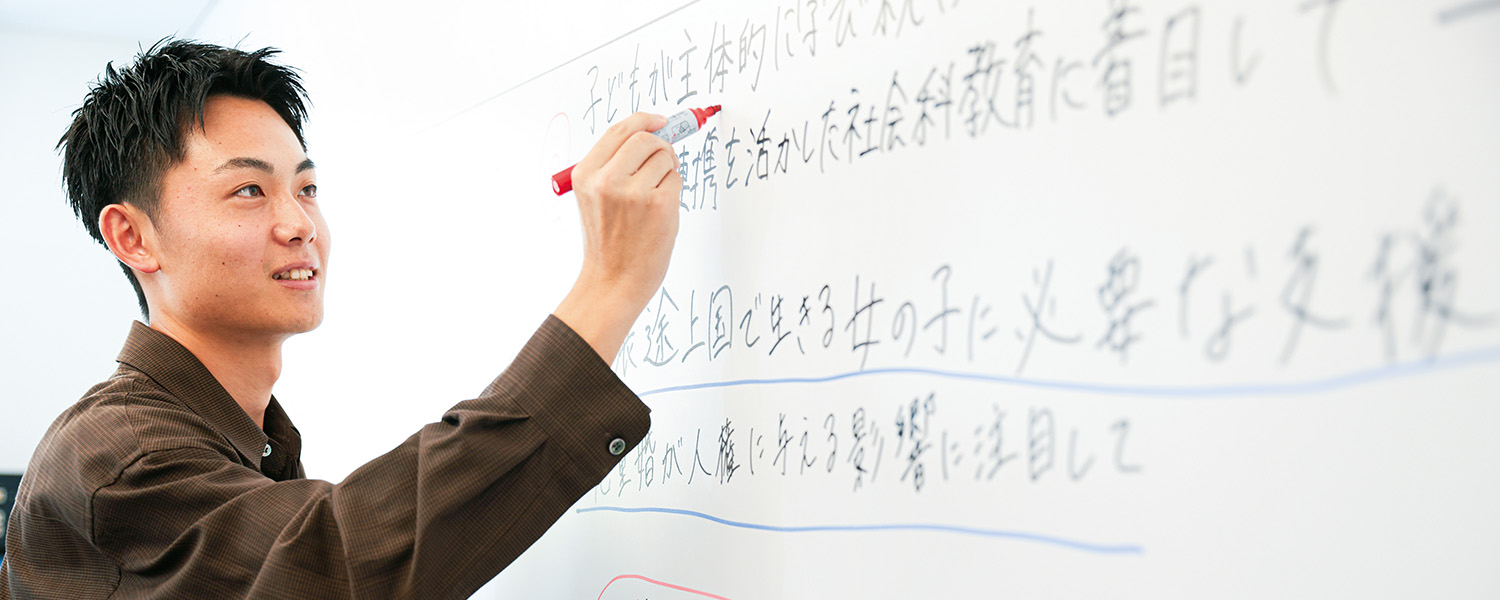 子どもが主体的に学び続け
連携を活かした社会科教育に着目して
途上国で生きる女の子に必要な支援
婚が人権に与える影響に注目して